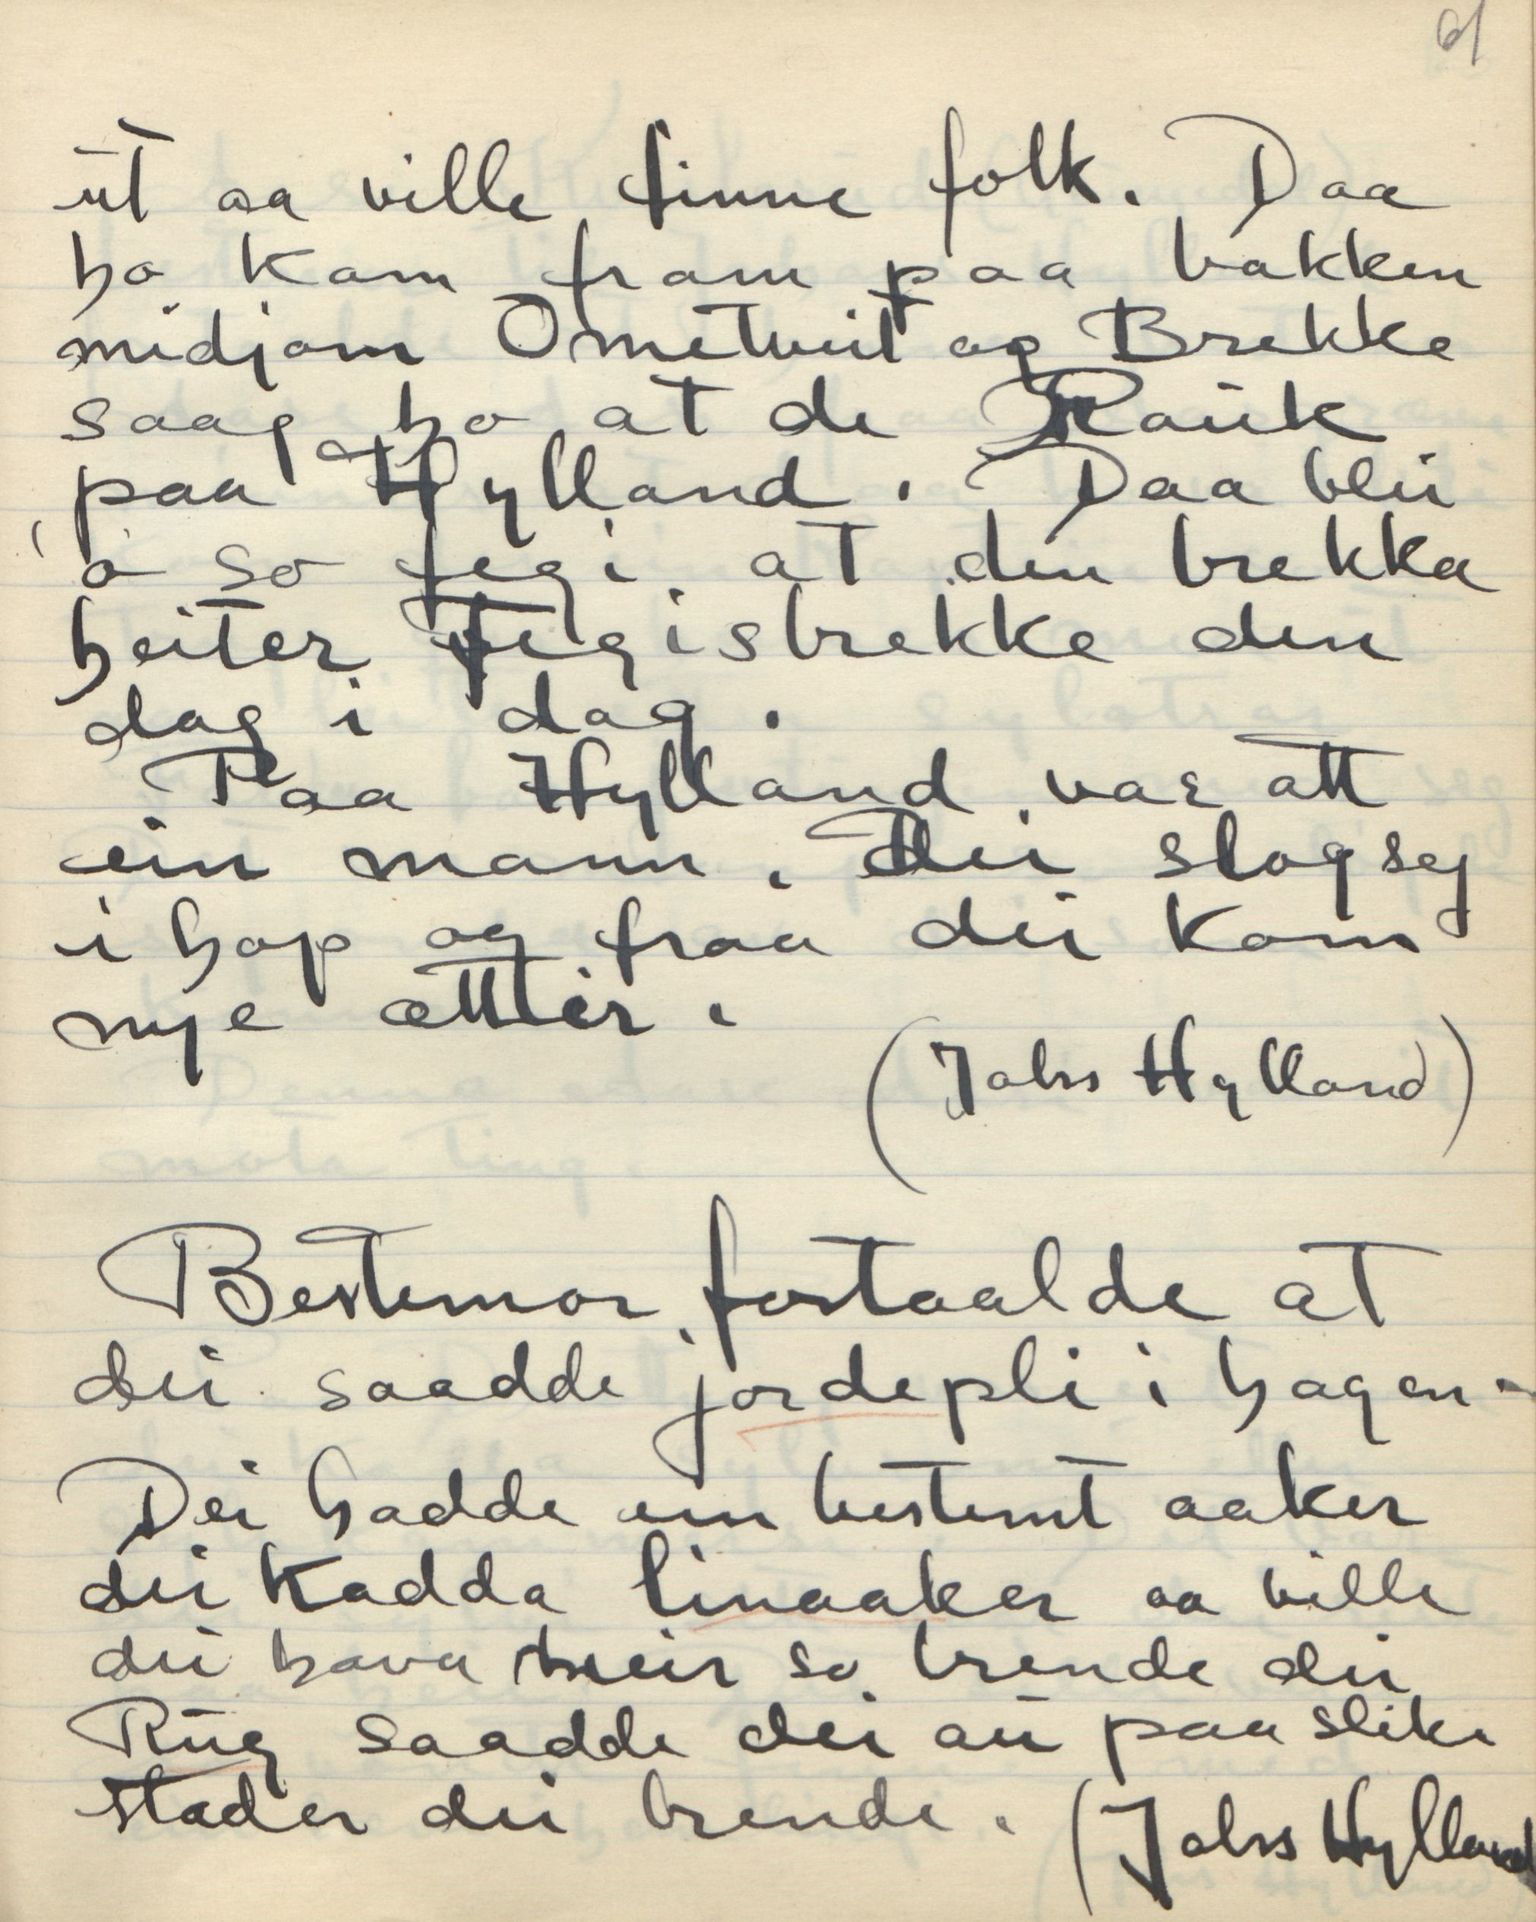 61
ut aa ville finne folk. Daa
ho kam fram paa bakken
midjom Ometveit og Brekke
saag ho at de Rauk
paa Hylland. Daa blei
o so fegi at den brekka
heiter Fegisbrekke den
dag i dag.
Paa Hylland var att
ein mann. Dei slog seg
i hop og fraa dei kom
nye ætter.
(Johs Hylland)
Bestemor fortaalde at
dei saadde jordepli i hagen -
Dei hadde ein bestemt aaker
dei kadda linaaker aa ville
dei hava meir so brende dei
Rug saadde dei au paa slike
stader dei brende. (Johs Hylland